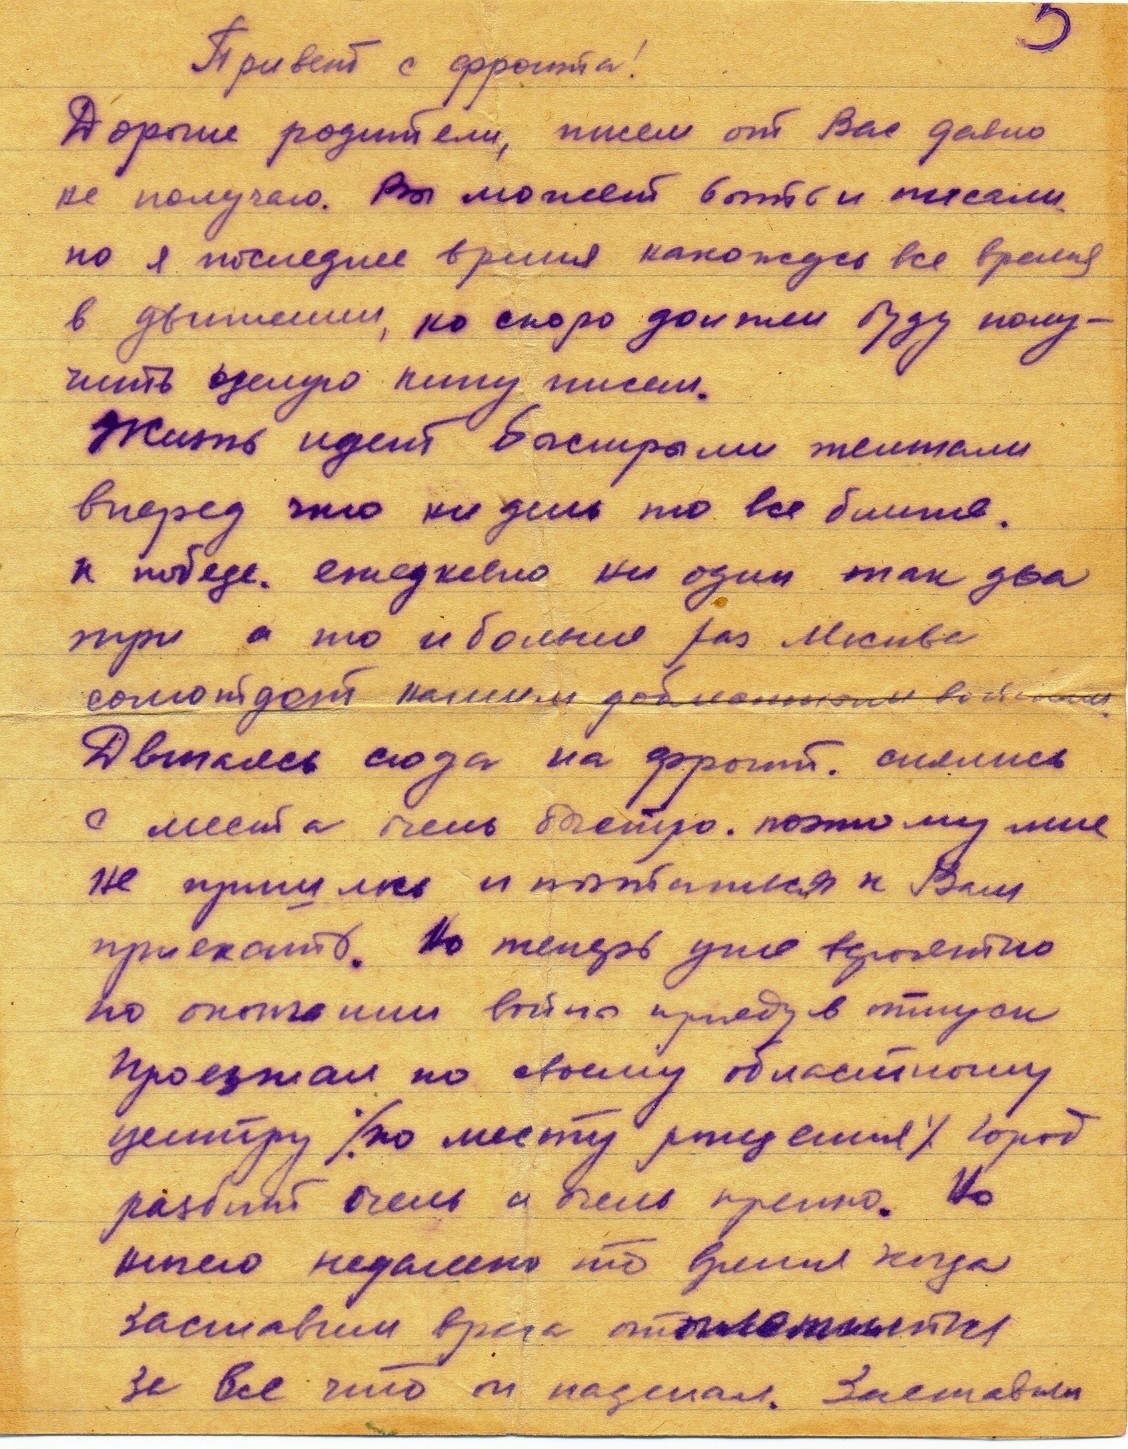 5
Привет с фронта!
Дорогие родители, писем от Вас давно
не получаю. Вы может быть и писали
но я последнее время нахожусь все время
в движении, но скоро должен буду полу-
чить целую кипу писем.
Жизнь идет быстрыми темпами
вперед что ни день то все ближе.
к победе. ежедневно ни один так два
три а то и больше раз Москва
нашим войскам.
Двигаясь сюда на фронт. снялись
с места очень быстро. поэтому мне
не пришлось и попытаться к Вам
приехать. Но теперь уже вероятно
по окончании войны приеду в отпуск
Проезжал по своему областному
центру /по месту рождения/ город
разбит очень и очень крепко. Но
ничего недалеко то время когда
заставим врага
за все что он наделал. Заставим